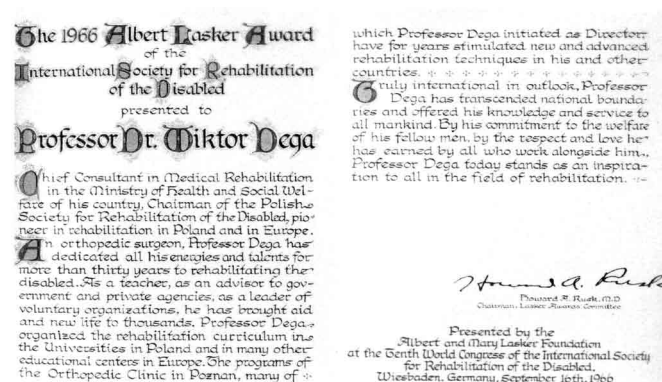 The 1966 Albert Lasker Award
of the
International Society for Rehabilitation
of the Disabled
presented to
Professor Dr. Wiktor Dega
Chief Consultant in Medical Rehabilitation
in the Ministry of Health and Social Wel-
fare of his country, Chairman of the Polish
Society for Rehabilitation of the Disabled, pio-
neer in rehabilitation in Poland and in Europe.
An orthopedic surgeon, Professor Dega has
dedicated all his energies and talents for
more than thirty years to rehabilitating the
disabled. As a teacher, as an advisor to gov-
ernment and private agencies, as a leader of
voluntary organizations, he has brought aid
and new life to thousands. Professor Dega
organized the rehabilitation curriculum in
the Universities in Poland and in many other
educational centers in Europe. The programs of
the Orthopedic Clinic in Poznan, many of
which Professor Dega initiated as Director,
have for years stimulated new and advanced
rehabilitation techniques in his and other
countries.
Truly international in outlook, Professor
Dega has transcended national bounda-
ries and offered his knowledge and service to
all mankind. By his commitment to the welfare
of his fellow men, by the respect and love he
has earned by all who work alongside him,
Professor Dega today stands as an inspira-
tion to all in the field of rehabilitation.
Howard A. Rusk
Howard A. Rusk, M.D
Chairman, Lasker Awards Committee
Presented by the
Albert and Mary Lasker Foundation
at the Tenth World Congress of the International Society
for Rehabilitation of the Disabled,
Wiesbaden, Germany, September 16th, 1966